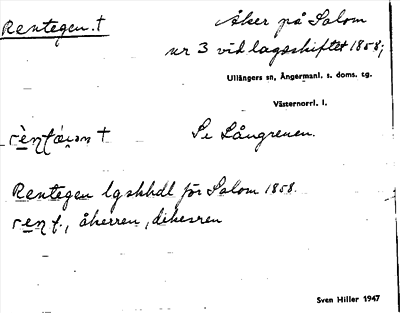 Rentegen. †
Åker på Salom
nr 3 vid lagaskiftet 1858;
Ullångers sn, Ångermanl. s. doms. tg.
Västernorrl. l.
Se Långrenen.
Rentegen lgskhdl för Salom 1858.
åkerren, dikesren
Sven Hiller 1947